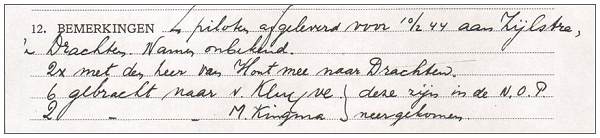 12. BEMERKINGEN piloten afgeleverd voor 10/2 44 aan Zijlstra,
Drachten. Namen onbekend.
2x met den heer van Hout mee naar Drachten.
6 gebracht naar v. Kluyve } deze zijn in de N.O.P
2 " " M. Kingma } neergekomen.